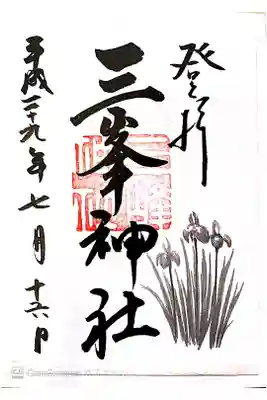 登拝
三峯神社
平成二十九年七月十六日